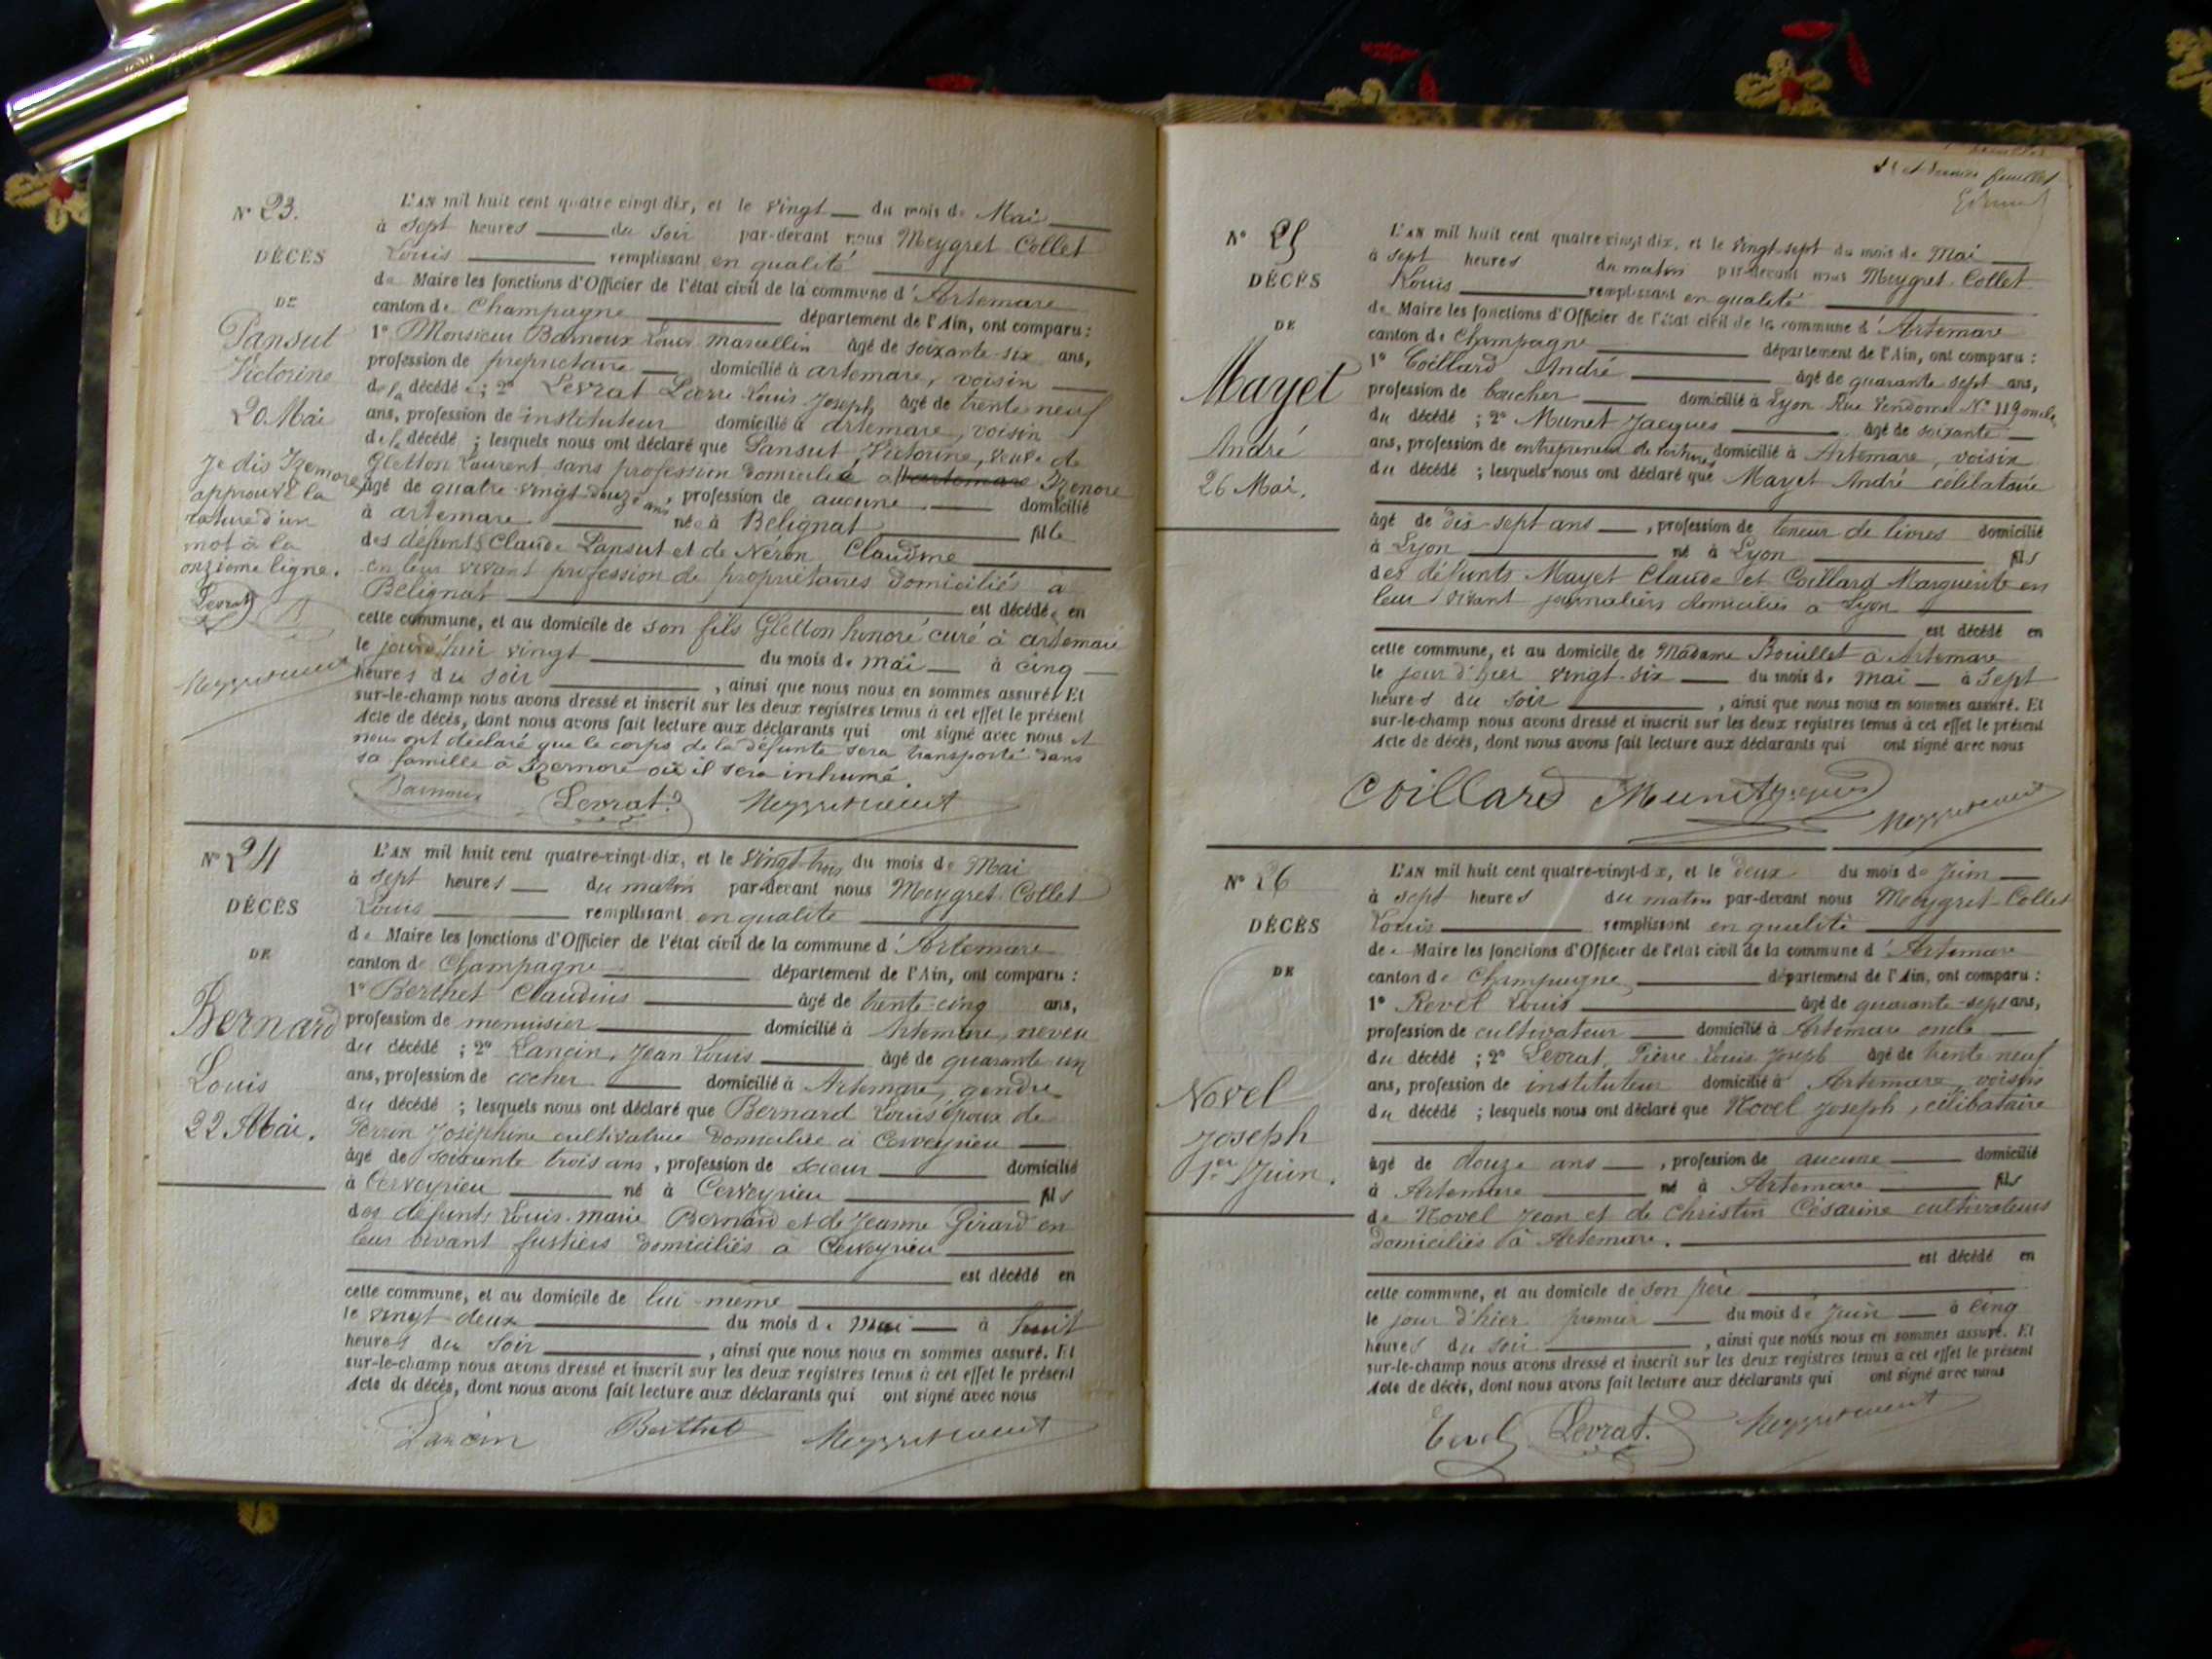 N° 23.
DÉCÈS
DE
Pansut
Victorine
20 Mai
Je dis Izernore
approuvé la
rature d'un
mot à la
onzième ligne.
Levrat
L'AN mil huit cent quatre-vingt-dix, et le vingt du mois de Mai
à sept heures du soir par-devant nous Meygret-Collet
Louis remplissant en qualité
de Maire les fonctions d'Officier de l'état civil de la commune d'Artemare
canton de Champagne département de l'Ain, ont comparu :
1° Monsieur Barnoux Louis Marcellin âgé de soixante-six ans,
profession de propriétaire domicilié à artemare, voisin
de la décédée ; 2° Levrat Pierre Louis Joseph âgé de trente neuf
ans, profession de instituteur domicilié à artemare, voisin
de la décédé ; lesquels nous ont déclaré que Pansut Victorine, veuve de
Gletton Laurent sans profession domiciliée à artemare Izenore
âgé de quatre-vingt-douze ans, profession de aucune domicilié
à artemare née à Belignat fille
des défunts Claude Pansut et de Néron Claudine
en leur vivant profession de propriétaires domiciliés à
Belignat est décédée en
cette commune, et au domicile de son fils Gletton honoré curé à artemare
le jourd'hui vingt du mois de mai à cinq
heures du soir, ainsi que nous nous en sommes assuré. Et
sur-le-champ nous avons dressé et inscrit sur les deux registres tenus à cet effet le présent
Acte de décès, dont nous avons fait lecture aux déclarants qui ont signé avec nous et
nous ont déclaré que le corps de la défunte sera transporté dans
sa famille à Izernore où il sera inhumé.
Barnoux Levrat
N° 24
DÉCÈS
DE
Bernard
Louis
22 Mai.
L'AN mil huit cent quatre-vingt-dix, et le vingt-trois du mois de Mai
à sept heures du matin par-devant nous Meygret-Collet
Louis remplissant en qualité
de Maire les fonctions d'Officier de l'état civil de la commune d'Artemare
canton de Champagne département de l'Ain, ont comparu :
1° Berthet Claudius âgé de trente-cinq ans,
profession de menuisier domicilié à Artemare, neveu
du décédé ; 2° Lancin, Jean Louis âgé de quarante un
ans, profession de cocher domicilié à Artemare, gendre
du décédé ; lesquels nous ont déclaré que Bernard Louis époux de
Perrin Joséphine cultivatrice domiciliée à Cerveyrieu
âgé de soixante trois ans, profession de scieur domicilié
à Cerveyrieu né à Cerveyrieu fils
des défunts Louis-marie Bernard et de Jeanne Girard en
leur vivant fustiers domiciliés à Cerveyrieu
est décédé en
cette commune, et au domicile de lui-même
le vingt-deux du mois de mai à huit
heures du soir, ainsi que nous nous en sommes assuré. Et
sur-le-champ nous avons dressé et inscrit sur les deux registres tenus à cet effet le présent
Acte de décès, dont nous avons fait lecture aux déclarants qui ont signé avec nous
Lancin Berthet
et dernier feuillet
N° 25
DÉCÈS
DE
Mayet
André
26 Mai.
L'AN mil huit cent quatre-vingt-dix, et le vingt-sept du mois de Mai
à sept heures du matin par-devant nous Meygret-Collet
Louis remplissant en qualité
de Maire les fonctions d'Officier de l'état civil de la commune d'Artemare
canton de Champagne département de l'Ain, ont comparu :
1° Coillard André âgé de quarante sept ans,
profession de boucher domicilié à Lyon Rue Vendome N° 119 oncle
du décédé ; 2° Munet Jacques âgé de soixante
ans, profession de entrepreneur de voitures domicilié à Artemare, voisin
du décédé ; lesquels nous ont déclaré que Mayet André célibataire
âgé de dix-sept ans, profession de teneur de livres domicilié
à Lyon né à Lyon fils
des défunts Mayet Claude et Coillard Marguerite en
leur vivant journaliers domiciliés à Lyon
est décédé en
cette commune, et au domicile de Madame Bouillet à Artemare
le jour d'hier vingt-six du mois de mai à sept
heures du soir, ainsi que nous nous en sommes assuré. Et
sur-le-champ nous avons dressé et inscrit sur les deux registres tenus à cet effet le présent
Acte de décès, dont nous avons fait lecture aux déclarants qui ont signé avec nous
Coillard Munet Jacques
N° 26
DÉCÈS
DE
Novel
Joseph
1er Juin.
L'AN mil huit cent quatre-vingt-dix, et le deux du mois de Juin
à sept heures du matin par-devant nous Meygret-Collet
Louis remplissant en qualité
de Maire les fonctions d'Officier de l'état civil de la commune d'Artemare
canton de Champagne département de l'Ain, ont comparu :
1° Revel Louis âgé de quarante-sept ans,
profession de cultivateur domicilié à Artemare oncle
du décédé ; 2° Levrat Pierre Louis Joseph âgé de trente neuf
ans, profession de instituteur domicilié à Artemare, voisin
du décédé ; lesquels nous ont déclaré que Novel Joseph, célibataire
âgé de douze ans, profession de aucune domicilié
à Artemare né à Artemare fils
de Novel Jean et de Christin Césarine cultivateurs
domiciliés à Artemare.
est décédé en
cette commune, et au domicile de son père
le jour d'hier premier du mois de Juin à cinq
heures du soir, ainsi que nous nous en sommes assuré. Et
sur-le-champ nous avons dressé et inscrit sur les deux registres tenus à cet effet le présent
Acte de décès, dont nous avons fait lecture aux déclarants qui ont signé avec nous
Levrat.